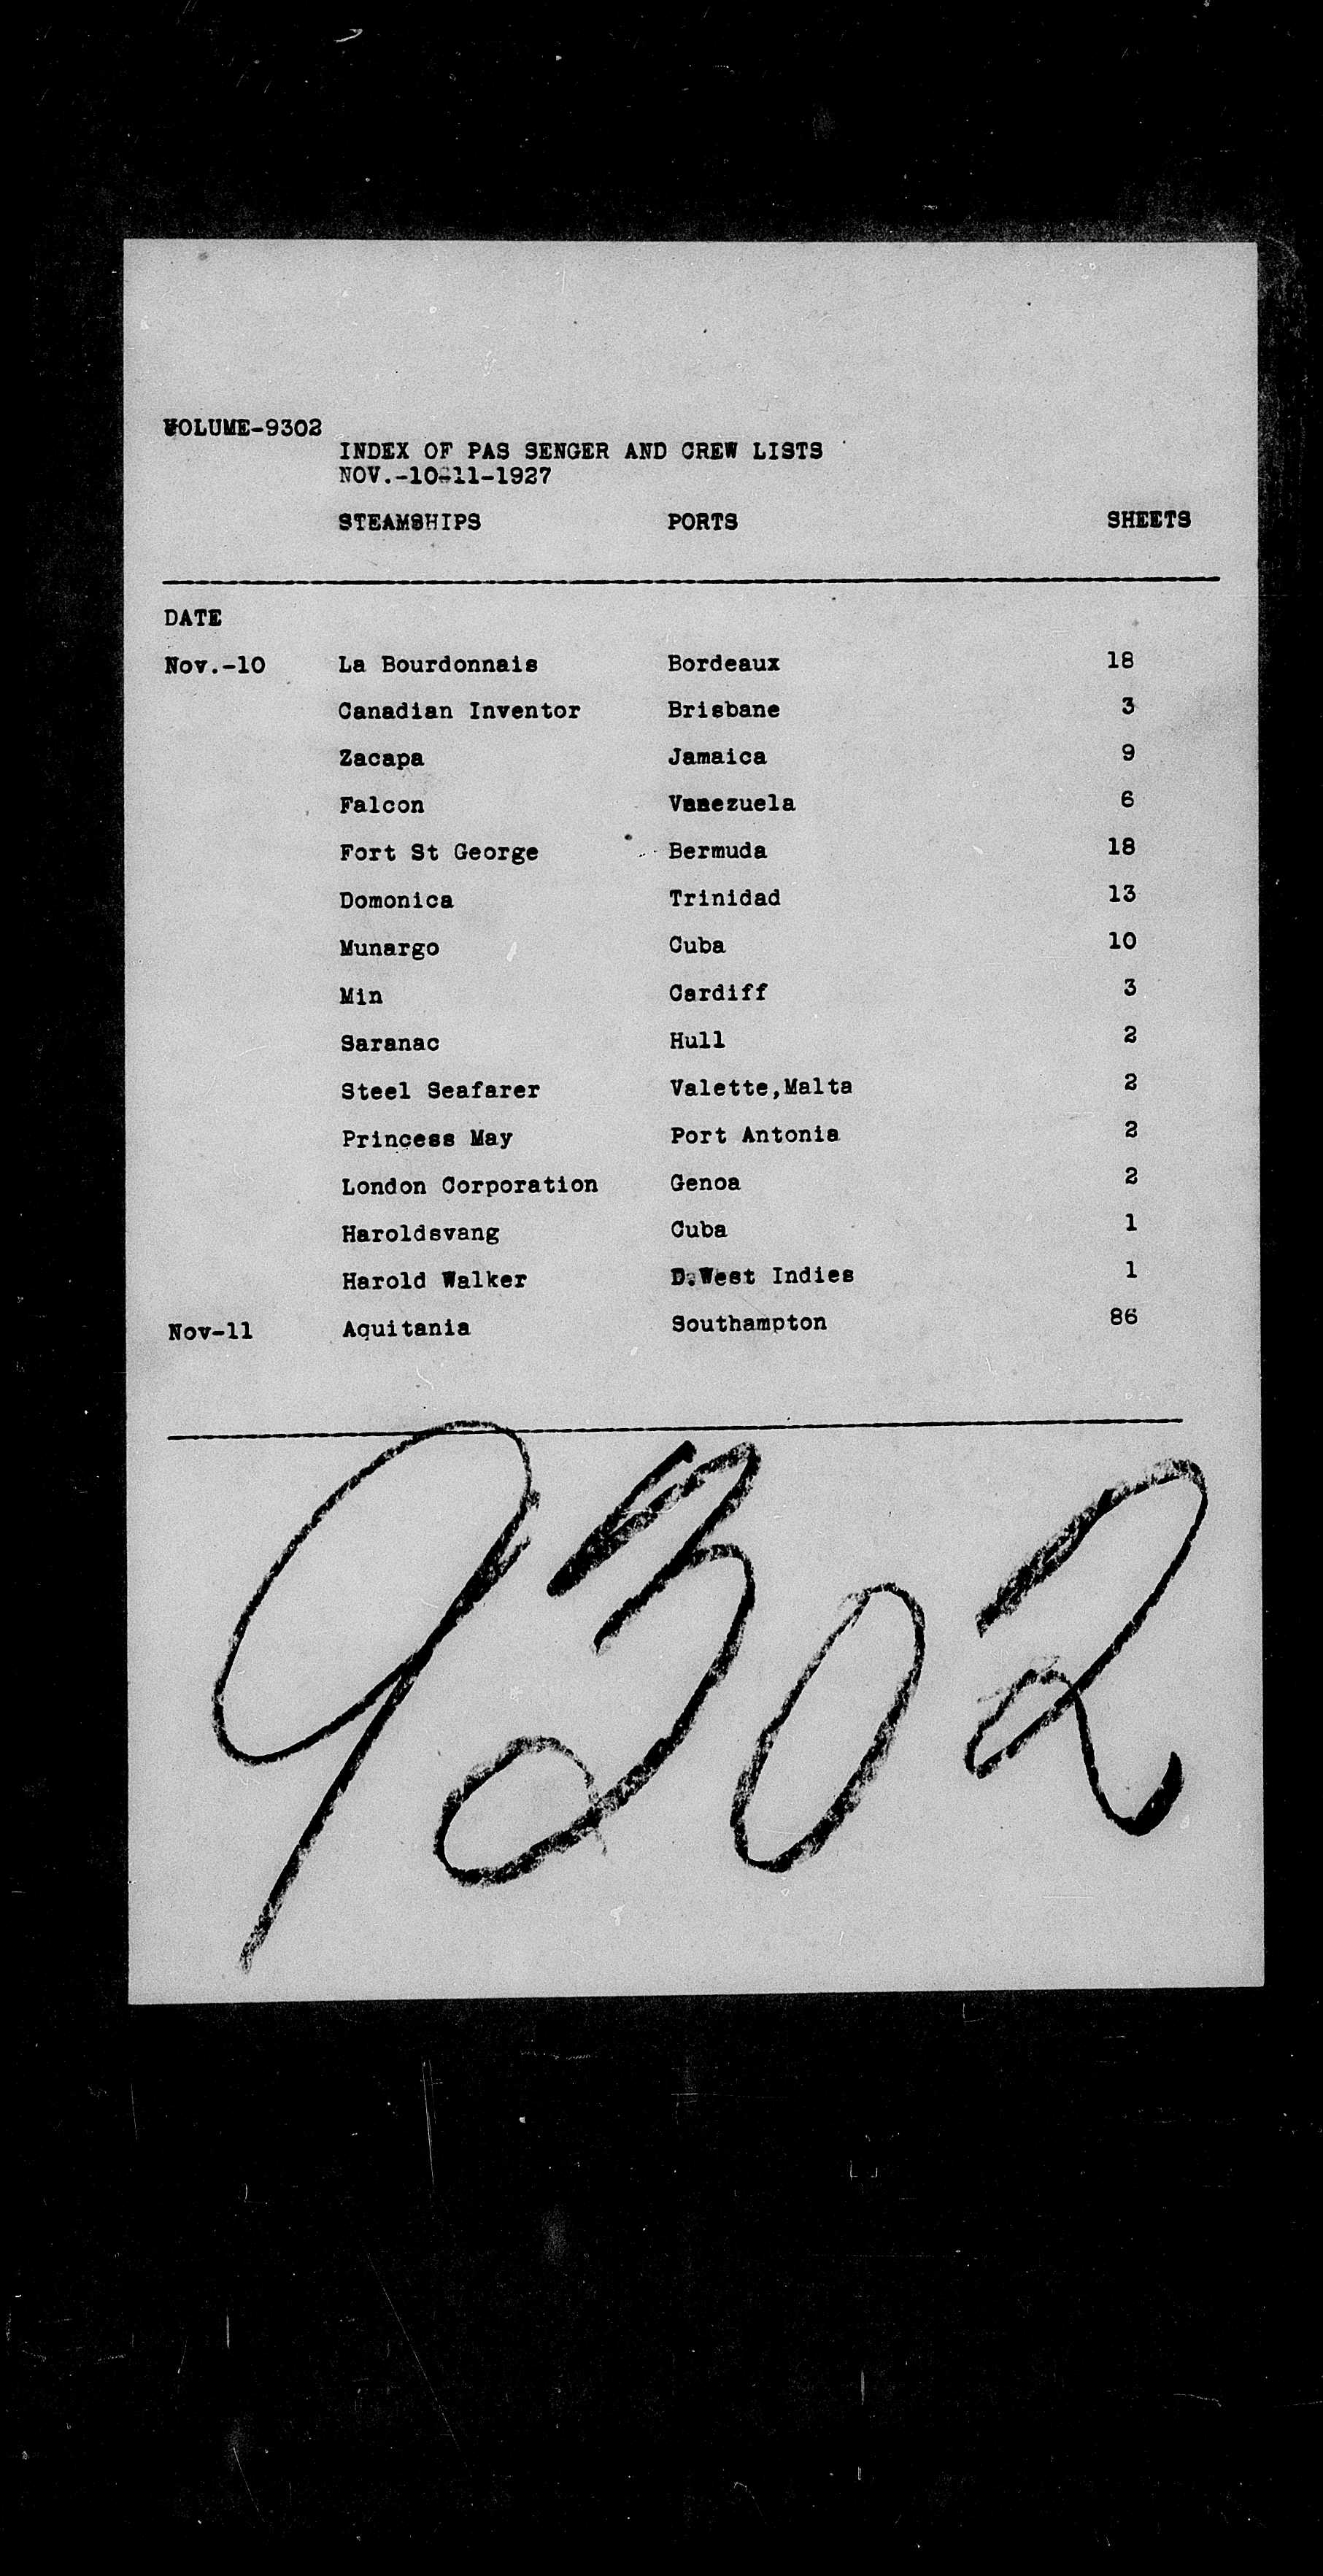 VOLUME-9302
INDEX OF PAS SENGER AND CREW LISTS
NOV.-10-11-1927
STEAMSHIPS PORTS SHEETS
DATE
Nov.-10 La Bourdonnais Bordeaux 18
Canadian Inventor Brisbane 3
Zacapa Jamaica 9
Falcon Venezuela 6
Fort St George Bermuda 18
Domonica Trinidad 13
Munargo Cuba 10
Min Cardiff 3
Saranac Hull 2
Steel Seafarer Valette,Malta 2
Princess May Port Antonia 2
London Corporation Genoa 2
Haroldsvang Cuba 1
Harold Walker D.West Indies 1
Nov-11 Aquitania Southampton 86
9302